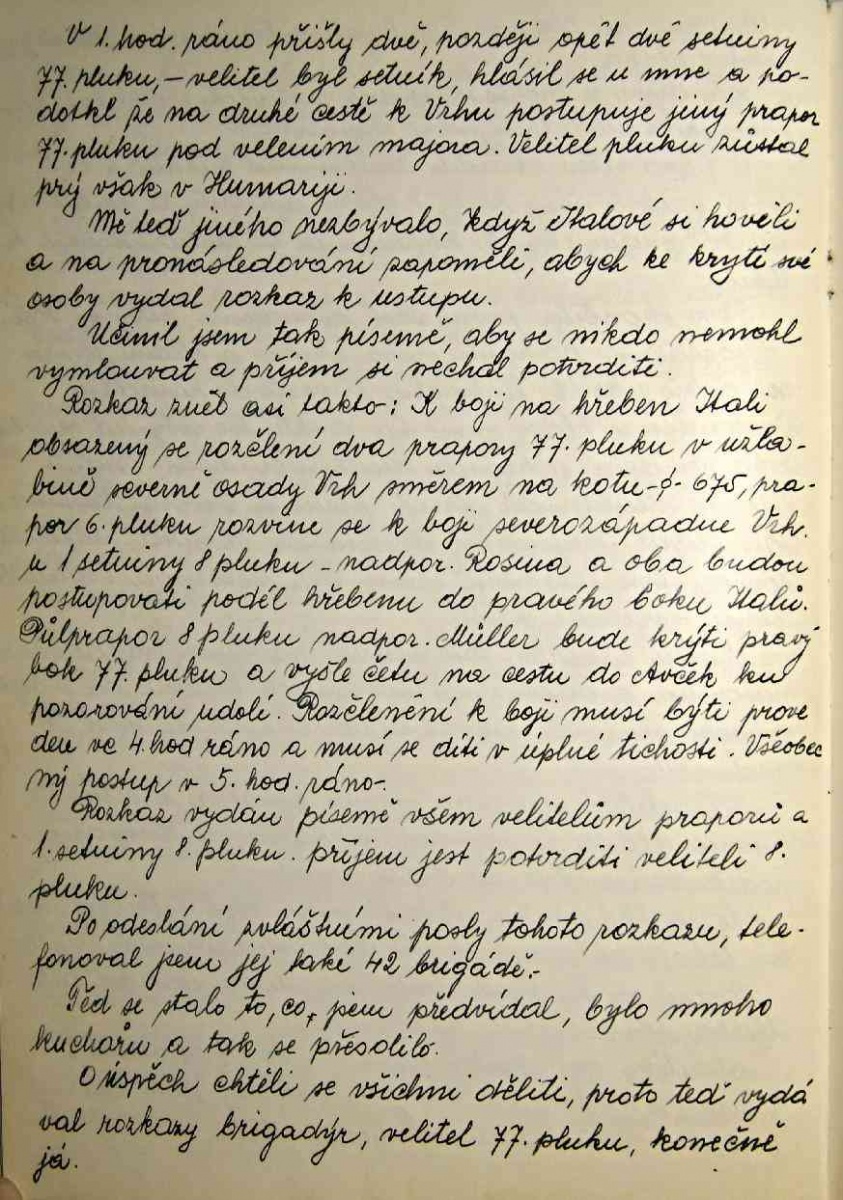 V 1. hod. ráno přišly dvě, později opět dvě setniny
77. pluku, – velitel byl setník, hlásil se u mne a po-
dotkl že na druhé cestě k Vrhu postupuje jiný prapor
77. pluku pod velením majora. Velitel pluku zůstal
prý však v Humariji.
Mě teď jiného nezbývalo, když Italové si hověli
a na pronásledování zapoměli, abych ke krytí své
osoby vydal rozkaz k ustupu.
Učinil jsem tak písemě, aby se nikdo nemohl
vymlouvat a příjem si nechal potvrditi.
Rozkaz zněl asi takto: K boji na hřeben Itali
obsazený se rozčlení dva prapory 77. pluku v úžla-
bině severně osady Vrh směrem na kotu -ϕ- 675, pra-
por 6. pluku rozvine se k boji severozápadne Vrh.
u 1 setniny 8 pluku – nadpor. Rosina a oba budou
postupovati podél hřebenu do pravého boku Italů.
Půlprapor 8 pluku nadpor. Müller bude krýti pravý
bok 77. pluku a vyšle četu na cestu do Avček ku
pozorování udolí. Rozčlenění k boji musí býti prove
den ve 4. hod ráno a musí se díti v úplné tichosti. Všeobec
ný postup v 5. hod. ráno-.
Rozkaz vydán písemě všem velitelům praporů a
1. setniny 8. pluku. příjem jest potvrditi veliteli 8.
pluku.
Po odeslání zvláštními posly tohoto rozkazu, tele-
fonoval jsem jej také 42 brigádě.-
Téd se stalo to, co, jsem předvídal, bylo mnoho
kuchařu a tak se přesolilo.
O úspěch chtěli se všichni děliti, proto teď vydá
val rozkazy brigadýr, velitel 77. pluku, konečně
já.